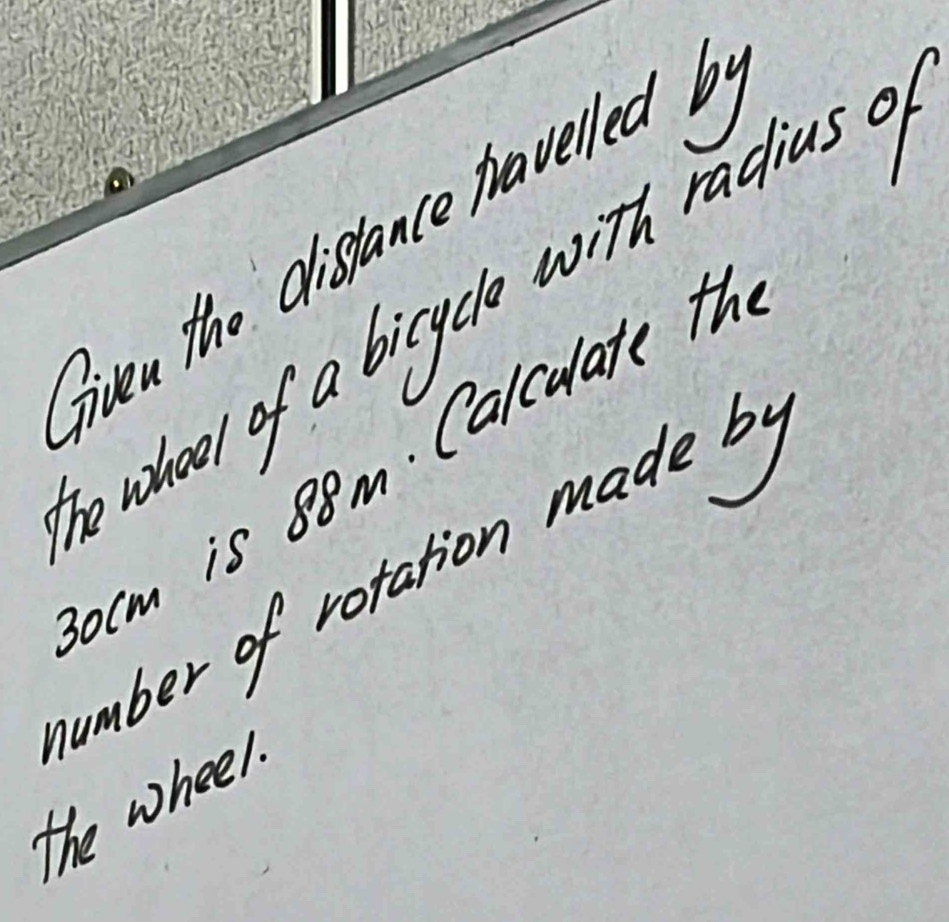 Given the distance travelled by
the wheel of a bicycle with radius of
30cm is 88m. Calculate the
number of rotation made by
the wheel.